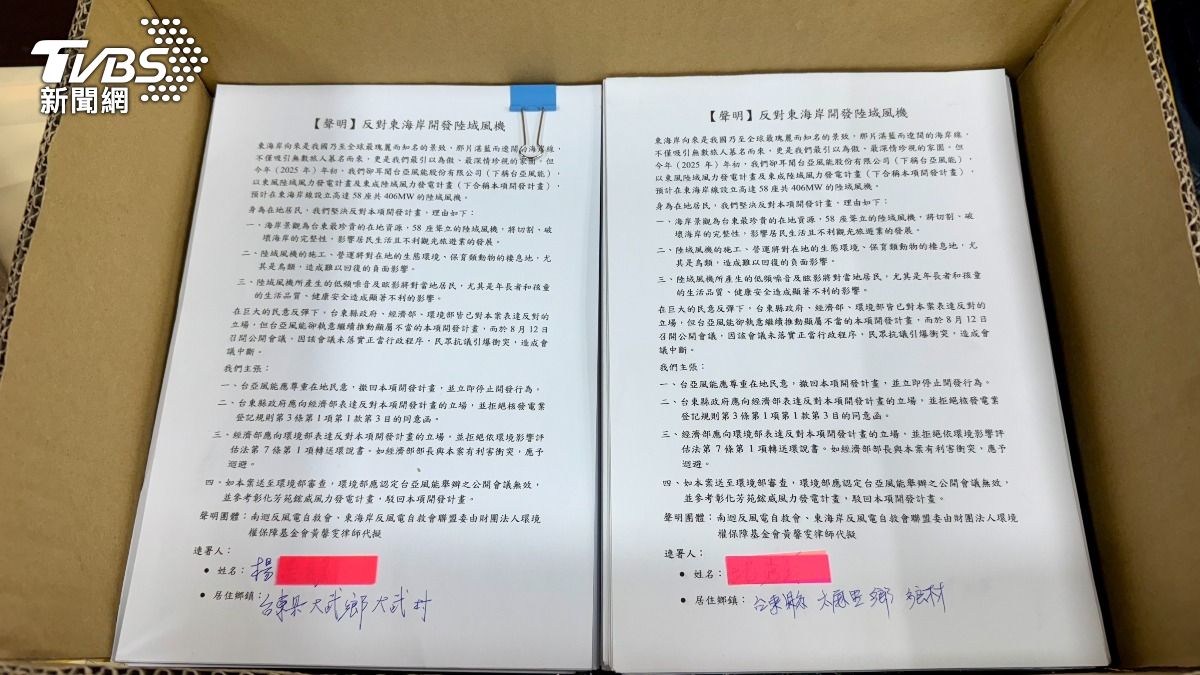 TVBS
新聞網
【聲明】反對東海岸開發陸域風機
東海岸向來是我國乃至全球最瑰麗而知名的景致,那片湛藍而遼闊的海岸線,
不僅吸引無數旅人慕名而來,更是我們最引以為傲、最深情珍視的家園。但
今年(2025 年)年初,我們卻耳聞台亞風能股份有限公司(下稱台亞風能),
以東風陸域風力發電計畫及東成陸域風力發電計畫(下合稱本項開發計畫),
預計在東海岸線設立高達 58 座共 406MW 的陸域風機。
身為在地居民,我們堅決反對本項開發計畫,理由如下:
一、海岸景觀為台東最珍貴的在地資源,58 座聳立的陸域風機,將切割、破
壞海岸的完整性,影響居民生活且不利觀光旅遊業的發展。
二、陸域風機的施工、營運將對在地的生態環境、保育類動物的棲息地,尤
其是鳥類,造成難以回復的負面影響。
三、陸域風機所產生的低頻噪音及眩影將對當地居民,尤其是年長者和孩童
的生活品質、健康安全造成顯著不利的影響。
在巨大的民意反彈下,台東縣政府、經濟部、環境部皆已對本案表達反對的
立場,但台亞風能卻執意繼續推動顯屬不當的本項開發計畫,而於 8 月 12 日
召開公開會議,因該會議未落實正當行政程序,民眾抗議引爆衝突,造成會
議中斷。
我們主張:
一、台亞風能應尊重在地民意,撤回本項開發計畫,並立即停止開發行為。
二、台東縣政府應向經濟部表達反對本項開發計畫的立場,並拒絕核發電業
登記規則第 3 條第 1 項第 1 款第 3 目的同意函。
三、經濟部應向環境部表達反對本項開發計畫的立場,並拒絕依環境影響評
估法第 7 條第 1 項轉送環說書。如經濟部部長與本案有利害衝突,應予
迴避。
四、如本案送至環境部審查,環境部應認定台亞風能舉辦之公開會議無效,
並參考彰化芳苑鋐威風力發電計畫,駁回本項開發計畫。
聲明團體:南迴反風電自救會、東海岸反風電自救會聯盟委由財團法人環境
權保障基金會黃馨雯律師代擬
連署人:
• 姓名:楊
• 居住鄉鎮:台東縣大武鄉大武村
【聲明】反對東海岸開發陸域風機
東海岸向來是我國乃至全球最瑰麗而知名的景致,那片湛藍而遼闊的海岸線,
不僅吸引無數旅人慕名而來,更是我們最引以為傲、最深情珍視的家園。但
今年(2025 年)年初,我們卻耳聞台亞風能股份有限公司(下稱台亞風能),
以東風陸域風力發電計畫及東成陸域風力發電計畫(下合稱本項開發計畫),
預計在東海岸線設立高達 58 座共 406MW 的陸域風機。
身為在地居民,我們堅決反對本項開發計畫,理由如下:
一、海岸景觀為台東最珍貴的在地資源,58 座聳立的陸域風機,將切割、破
壞海岸的完整性,影響居民生活且不利觀光旅遊業的發展。
二、陸域風機的施工、營運將對在地的生態環境、保育類動物的棲息地,尤
其是鳥類,造成難以回復的負面影響。
三、陸域風機所產生的低頻噪音及眩影將對當地居民,尤其是年長者和孩童
的生活品質、健康安全造成顯著不利的影響。
在巨大的民意反彈下,台東縣政府、經濟部、環境部皆已對本案表達反對的
立場,但台亞風能卻執意繼續推動顯屬不當的本項開發計畫,而於 8 月 12 日
召開公開會議,因該會議未落實正當行政程序,民眾抗議引爆衝突,造成會
議中斷。
我們主張:
一、台亞風能應尊重在地民意,撤回本項開發計畫,並立即停止開發行為。
二、台東縣政府應向經濟部表達反對本項開發計畫的立場,並拒絕核發電業
登記規則第 3 條第 1 項第 1 款第 3 目的同意函。
三、經濟部應向環境部表達反對本項開發計畫的立場,並拒絕依環境影響評
估法第 7 條第 1 項轉送環說書。如經濟部部長與本案有利害衝突,應予
迴避。
四、如本案送至環境部審查,環境部應認定台亞風能舉辦之公開會議無效,
並參考彰化芳苑鋐威風力發電計畫,駁回本項開發計畫。
聲明團體:南迴反風電自救會、東海岸反風電自救會聯盟委由財團法人環境
權保障基金會黃馨雯律師代擬
連署人:
• 姓名:
• 居住鄉鎮:台東縣 太麻里鄉 村